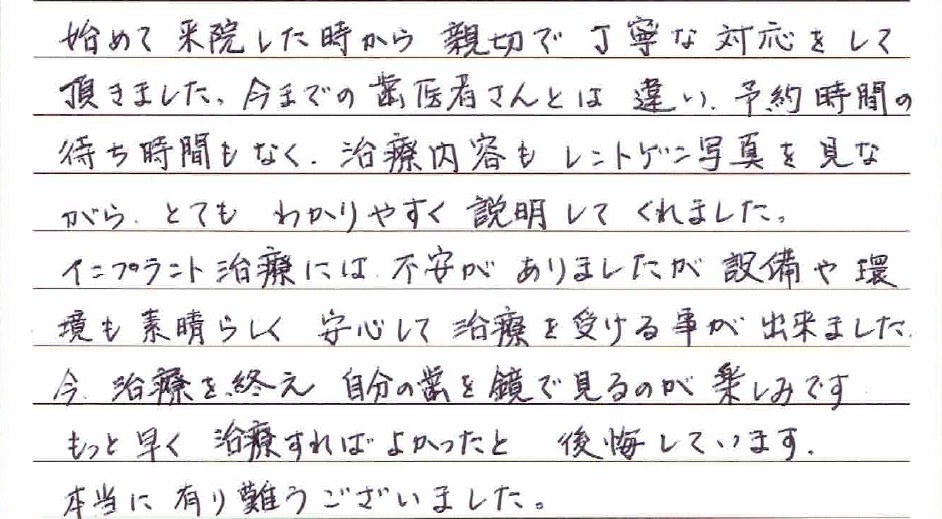 始めて来院した時から 親切で 丁寧な対応をして
頂きました。今までの歯医者さんとは 違い、予約時間の
待ち時間もなく、治療内容もレントゲン写真を見な
がら、とても わかりやすく 説明して くれました。
インプラント治療には、不安が ありましたが 設備や環
境も素晴らしく 安心して 治療を受ける事が 出来ました。
今、治療を終え 自分の歯を鏡で見るのが楽しみです
もっと早く 治療すればよかったと 後悔しています。
本当に 有り難うございました。